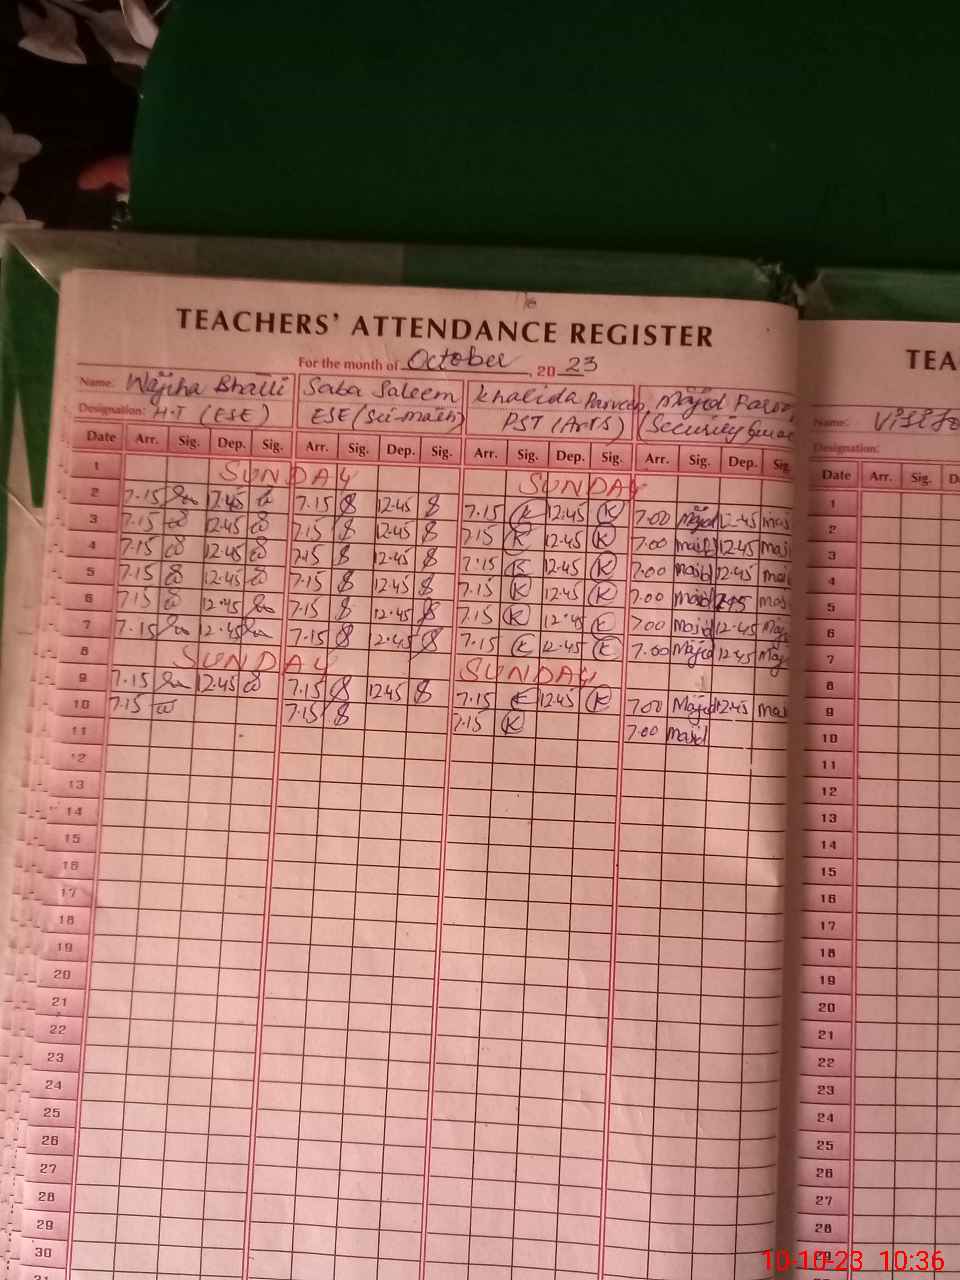 TEACHERS' ATTENDANCE REGISTER
For the month of October, 2023
Name: Wajiha Bhatti Saba Saleem Khalida Parveen Majid
Designation: H.T (ESE) ESE (Sci-math) PST (Arts) (Security
Date Arr. Sig. Dep. Sig. Arr. Sig. Dep. Sig. Arr. Sig. Dep. Sig. Arr. Sig. Dep. Sig.
1 SUNDAY SUNDAY
2 7.15 12.45 7.15 12.45 7.15 K 12.45 K 7.00 Majid 12.45
3 7.15 12.45 7.15 12.45 7.15 K 12.45 K 7.00 majid 12.45
4 7.15 12.45 7.15 12.45 7.15 K 12.45 K 7.00 majid 12.45
5 7.15 12.45 7.15 12.45 7.15 K 12.45 K 7.00 majid
6 7.15 12.45 7.15 12.45 7.15 K 12.45 K 7.00 Majid 12.45
7 7.15 12.45 7.15 12.45 7.15 K 12.45 K 7.00 Majid 12.45
8 SUNDAY SUNDAY
9 7.15 12.45 7.15 12.45 7.15 K 12.45 K 7.00 Majid 12.45
10 7.15 7.15 7.15 K 7.00 majid
11
12
13
14
15
16
17
18
19
20
21
22
23
24
25
26
27
28
29
30
TEA
Name:
Designation:
Date Arr. Sig. D
1
2
3
4
5
6
7
8
9
10
11
12
13
14
15
16
17
18
19
20
21
22
23
24
25
26
27
28
29
10-10-23 10:36